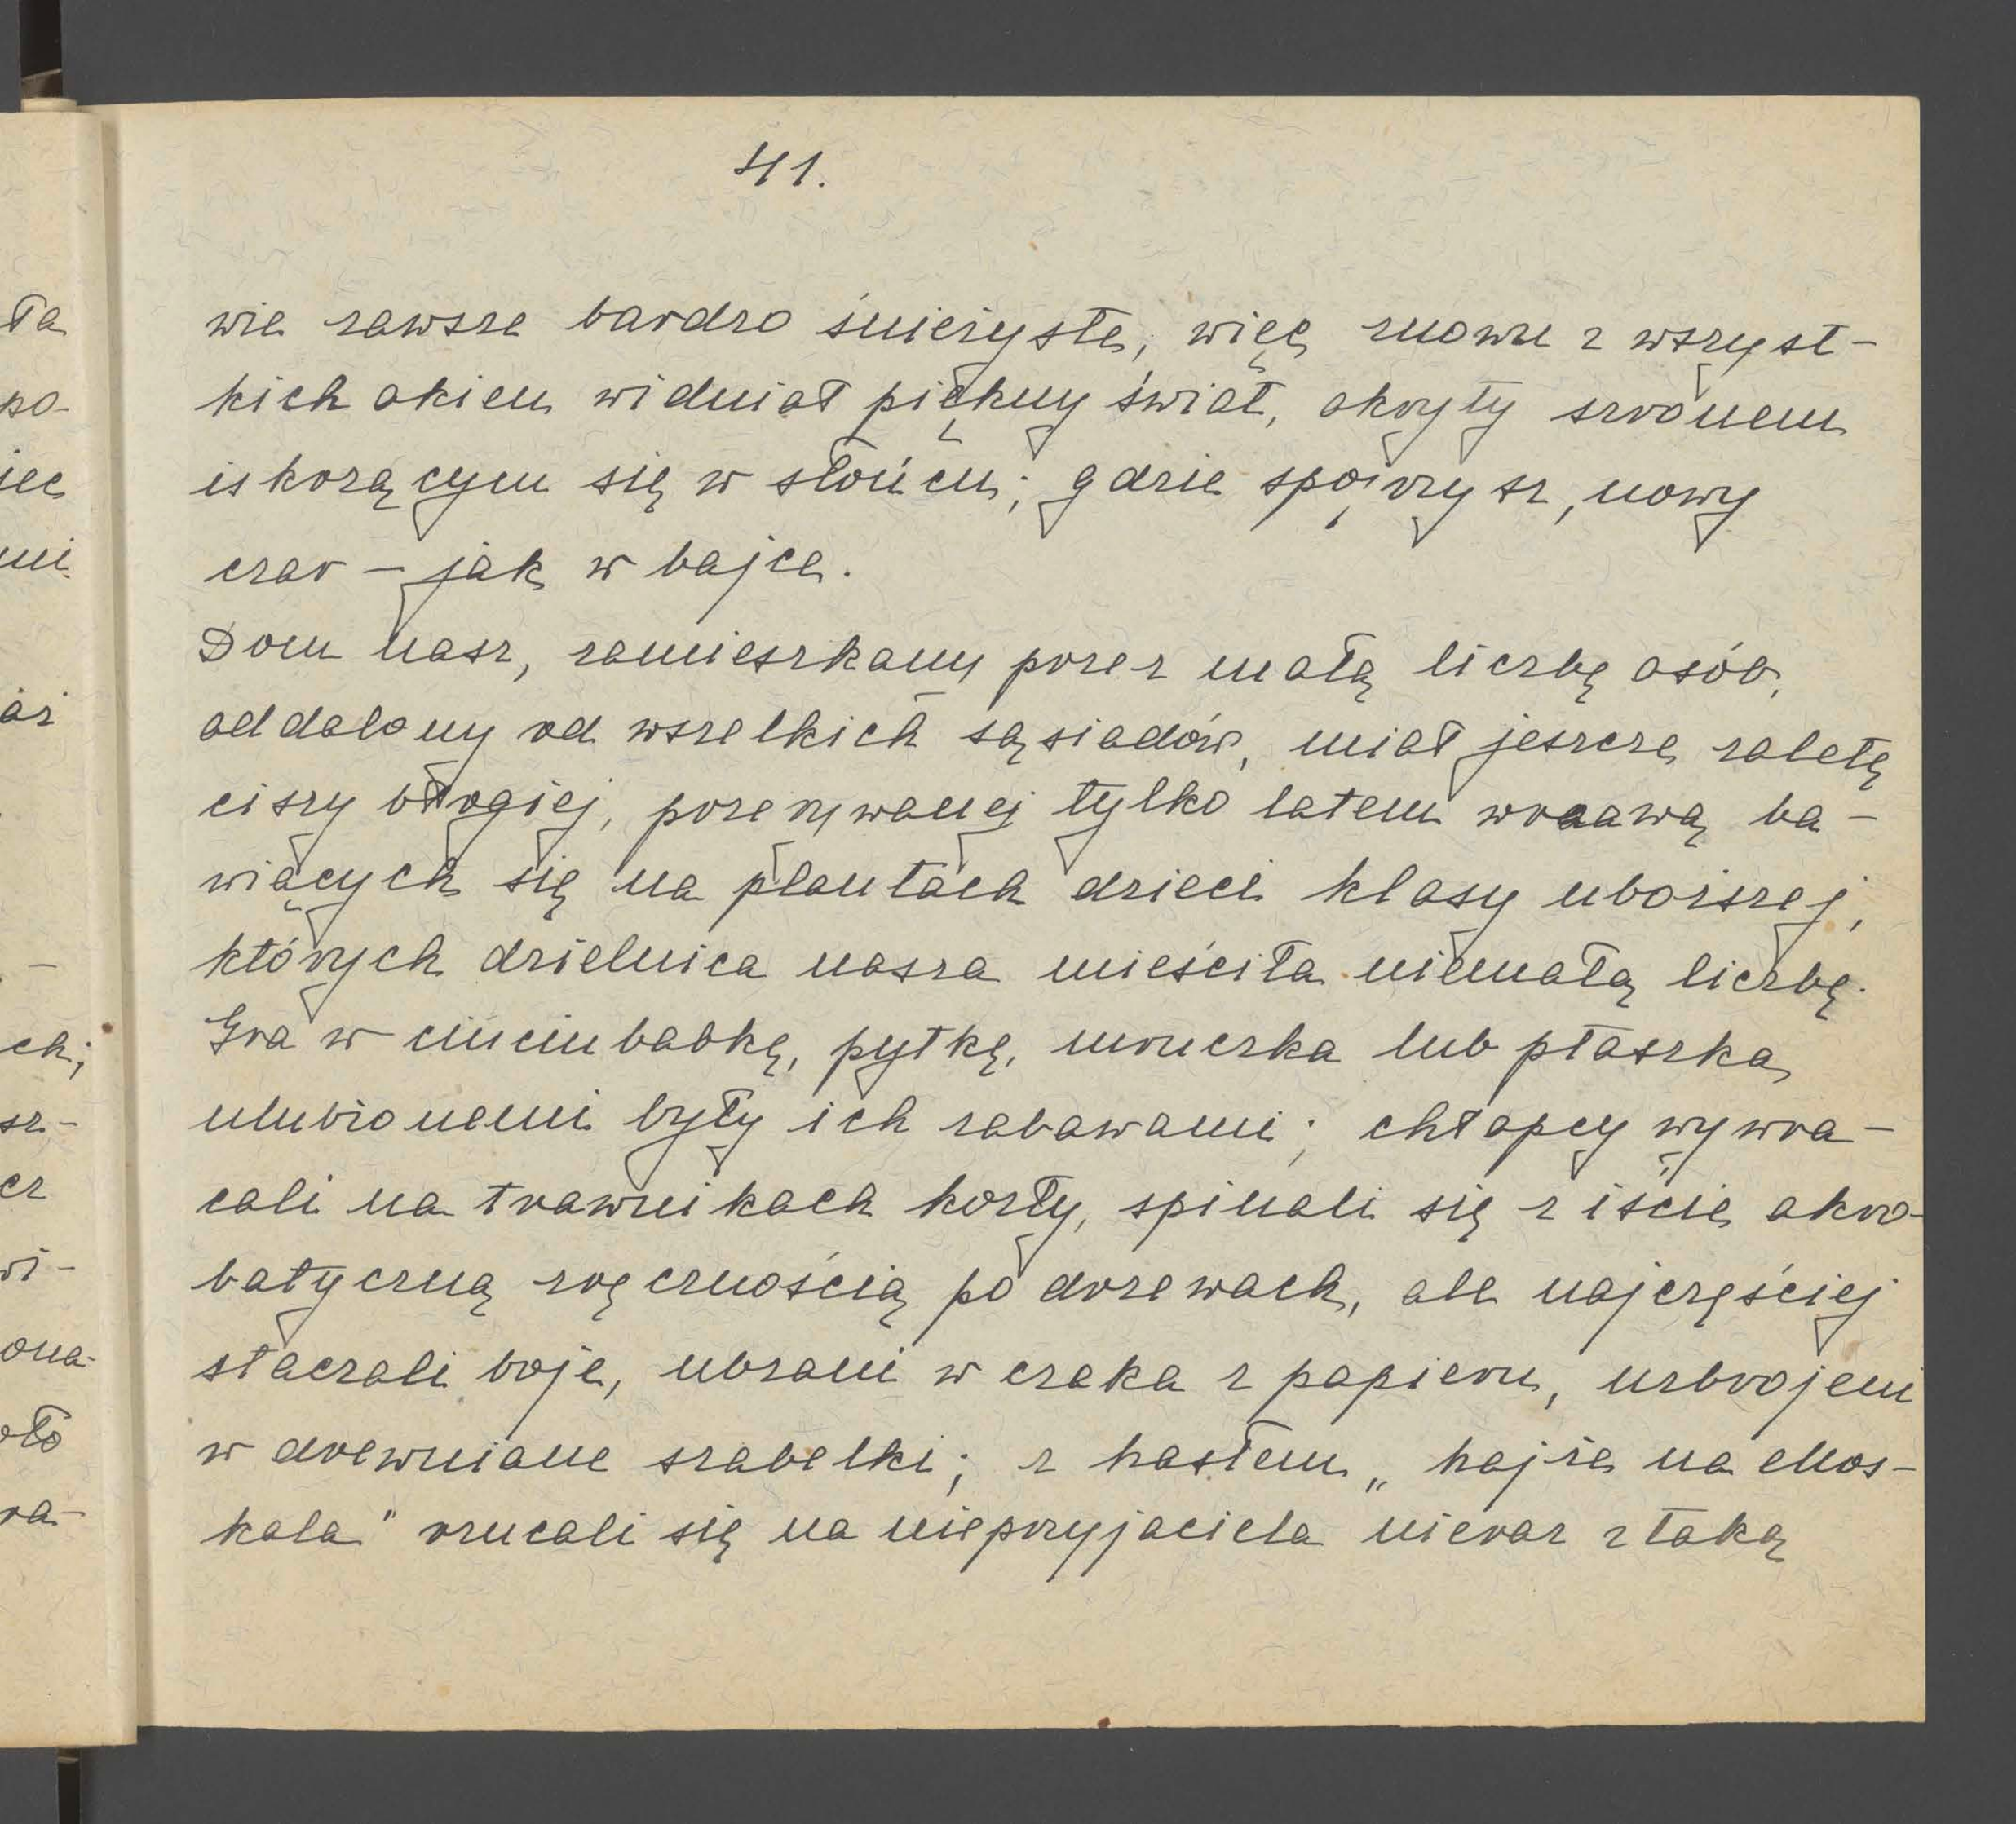 41.
wie zawsze bardzo śnieżyste, więc znowu z wszyst-
kich okien widniał piękny świat, okryty szronem
iskorzącym się w słońcu; gdzie spojrzysz, nowy
czar – jak w bajce.
Dom nasz, zamieszkany przez małą liczbę osób,
oddalony od wszelkich sąsiadów, miał jeszcze zaletę
ciszy błogiej, przerywanej tylko latem wrzawą ba-
wiących się na plantach dzieci klasy uboższej,
których dzielnica nasza mieściła niemałą liczbę.
Gra w ciuciubabkę, pytkę, mruczka lub ptaszka
ulubionemi były ich zabawami; chłopcy wywra-
cali na trawnikach kozły, spinali się z iście akro-
batyczną zręcznością po drzewach, ale najczęściej
staczali boje, ubrani w czaka z papieru, uzbrojeni
w drewniane szabelki; z hasłem „hajże na Mos-
kala" rzucali się na nieprzyjaciela nieraz z taką
ła
po-
iec
mi.
aż
–
ch;
sz-
cz
wi-
ona-
oło
ra-